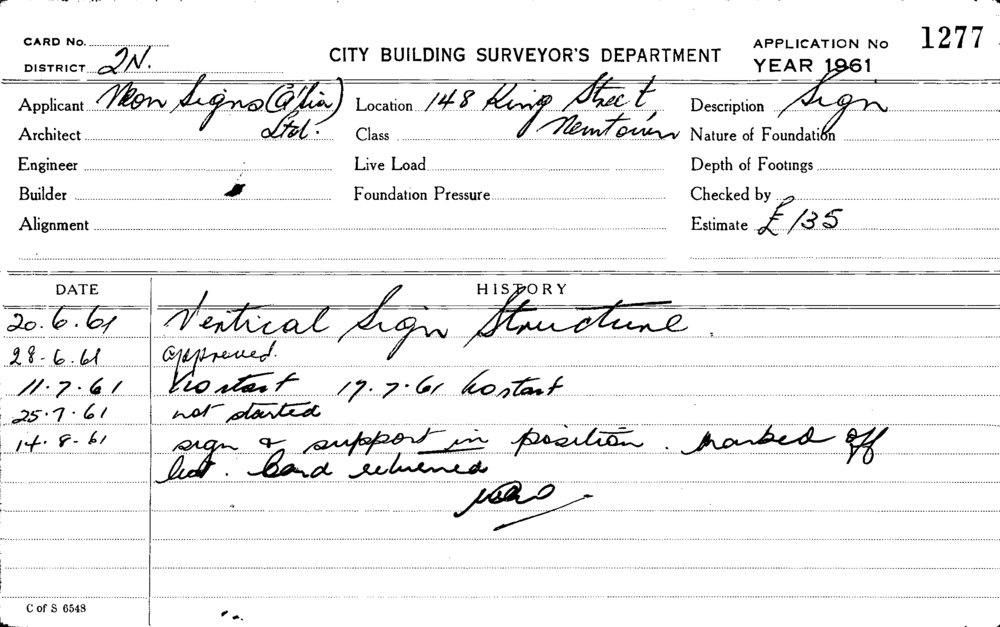 CARD No.
DISTRICT 2N.
CITY BUILDING SURVEYOR'S DEPARTMENT
APPLICATION No 1277
YEAR 1961
Applicant Neon Signs (A'sia) Ltd.
Location 148 King Street Newtown
Description Sign
Architect
Class
Nature of Foundation
Engineer
Live Load
Depth of Footings
Builder
Foundation Pressure
Checked by
Alignment
Estimate £ 135
DATE
HISTORY
20.6.61 Vertical Sign Structure.
28.6.61 approved.
11.7.61 No start 17.7.61 No start
25.7.61 not started
14.8.61 sign & support in position. marked off
list. Card returned
C of S 6548